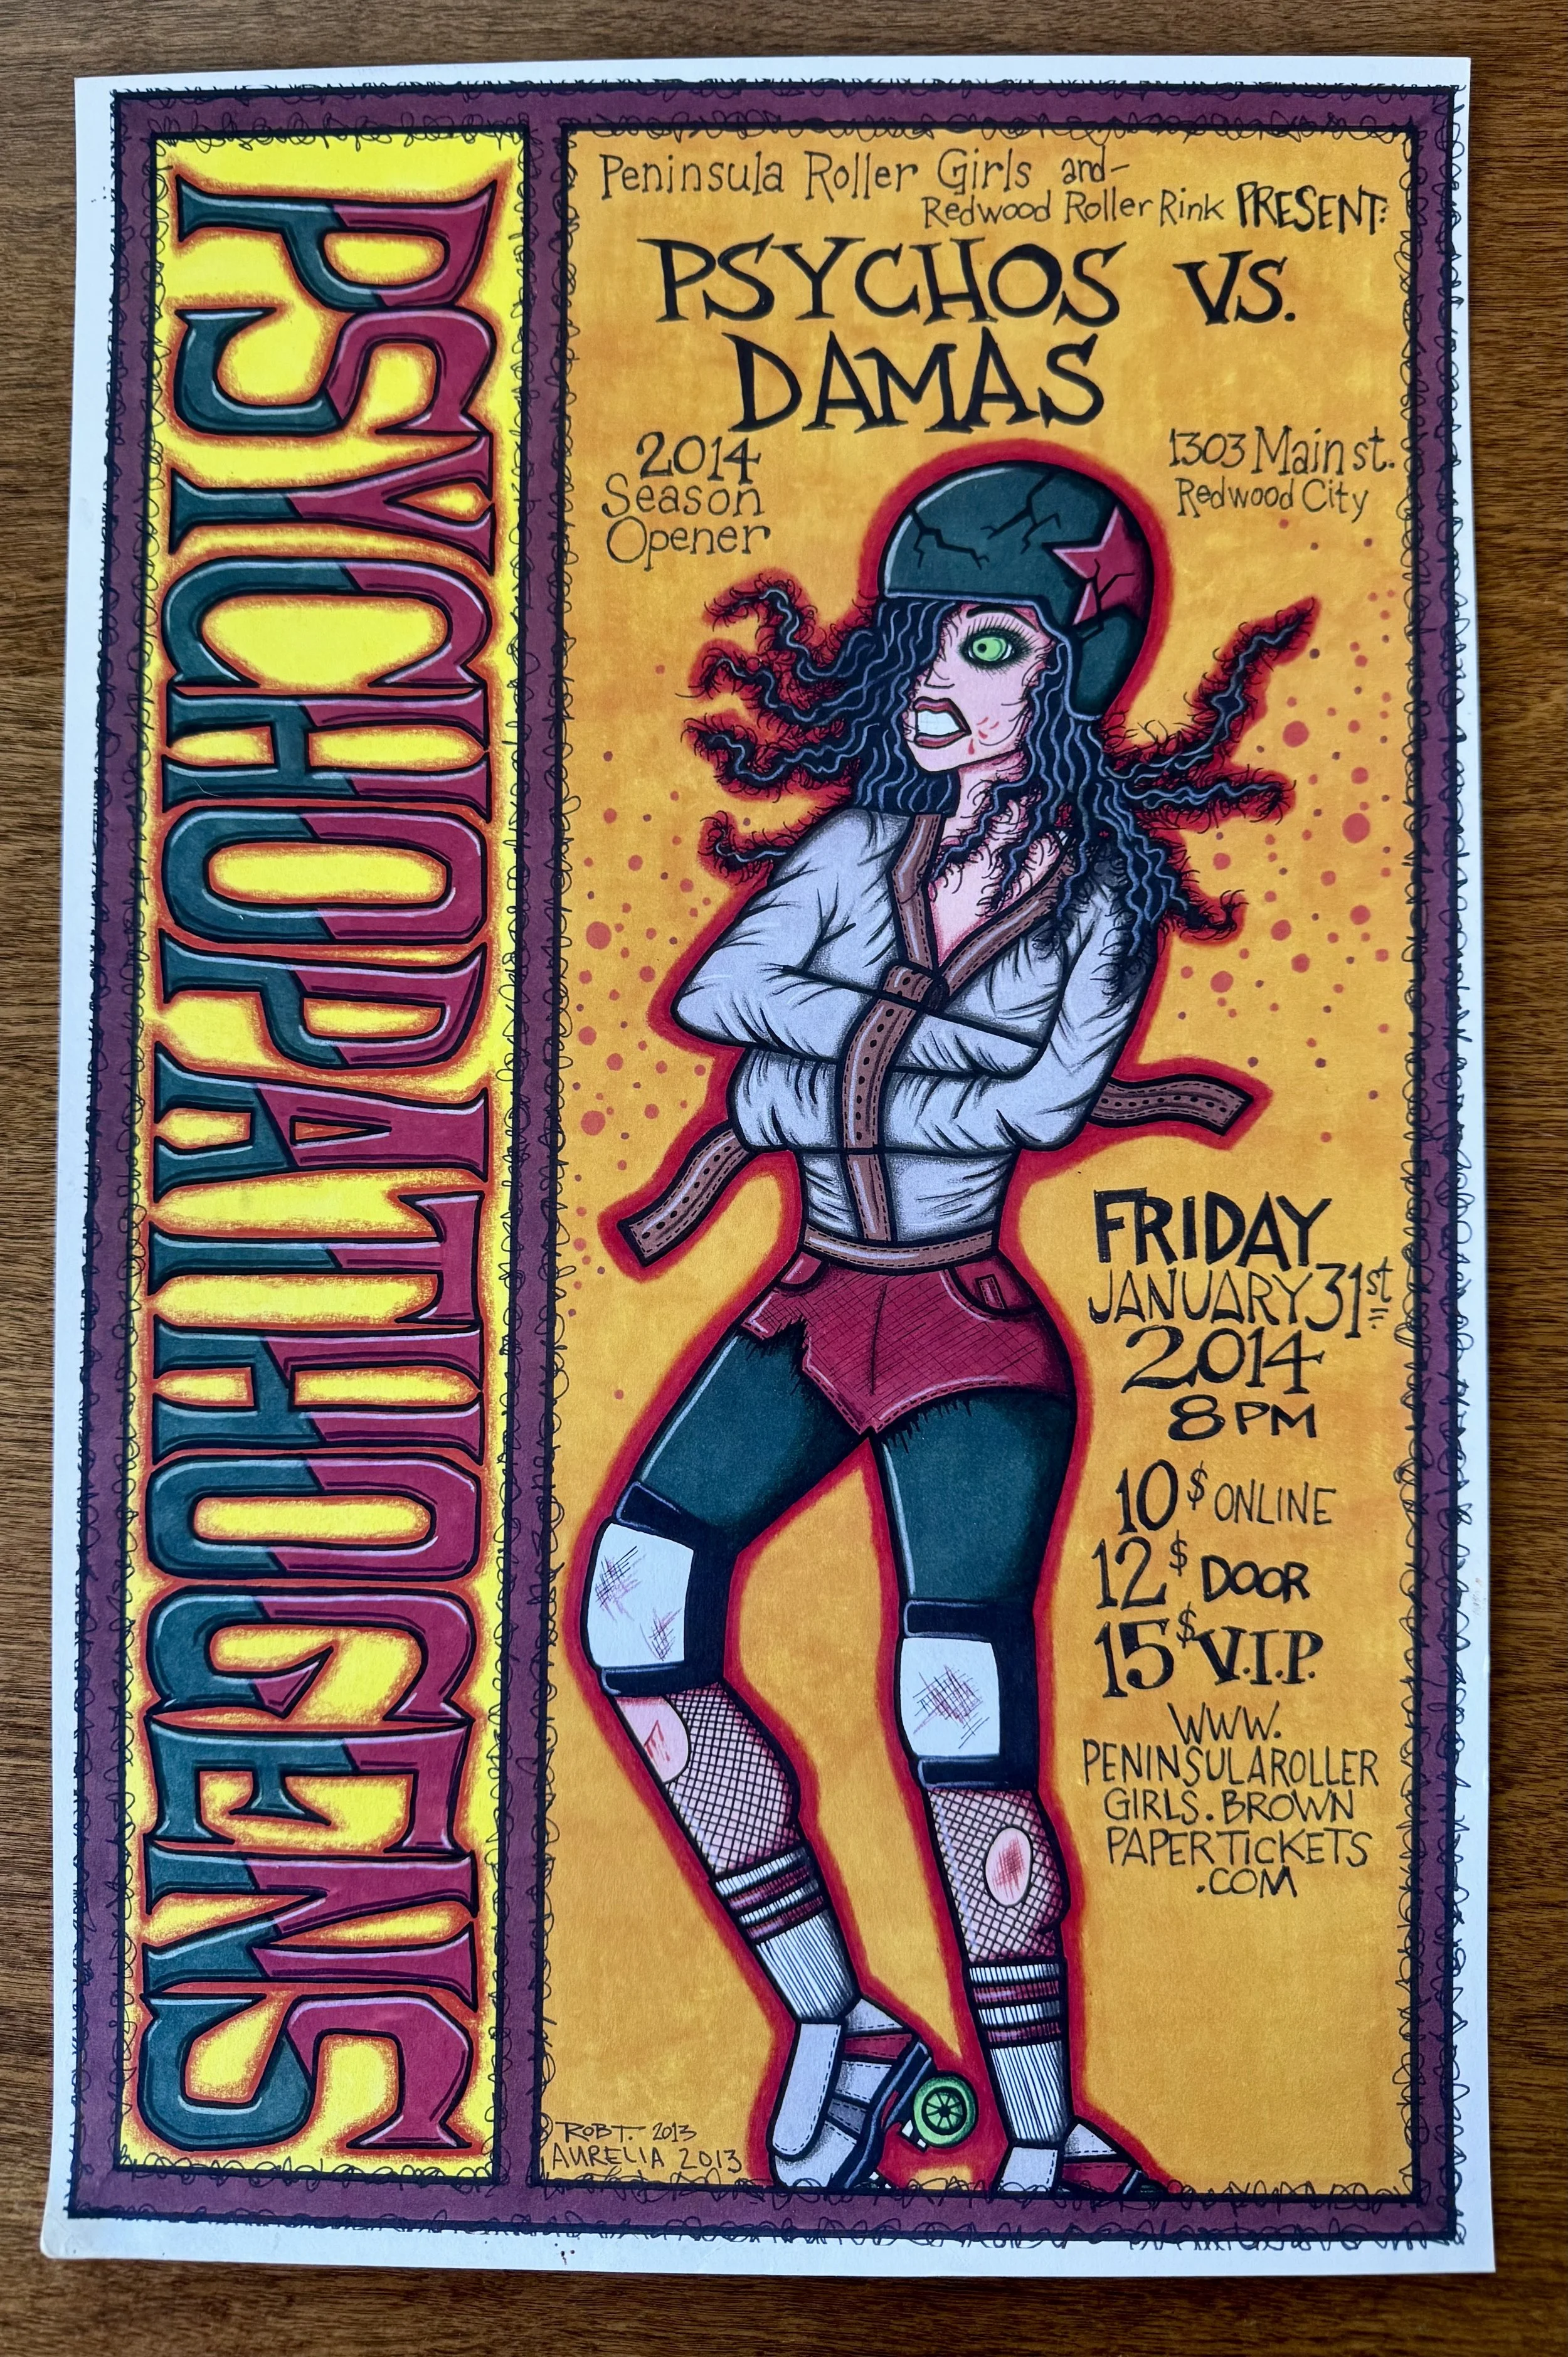 PSYCHOPATHOGENS
Peninsula Roller Girls and-
Redwood Roller Rink PRESENT:
PSYCHOS VS.
DAMAS
2014
Season
Opener
1303 Main st.
Redwood City
FRIDAY
JANUARY 31st
2014
8 PM
10$ ONLINE
12$ DOOR
15$ V.I.P.
WWW.
PENINSULAROLLER
GIRLS.BROWN
PAPERTICKETS
.COM
ROB T. 2013
AURELIA 2013